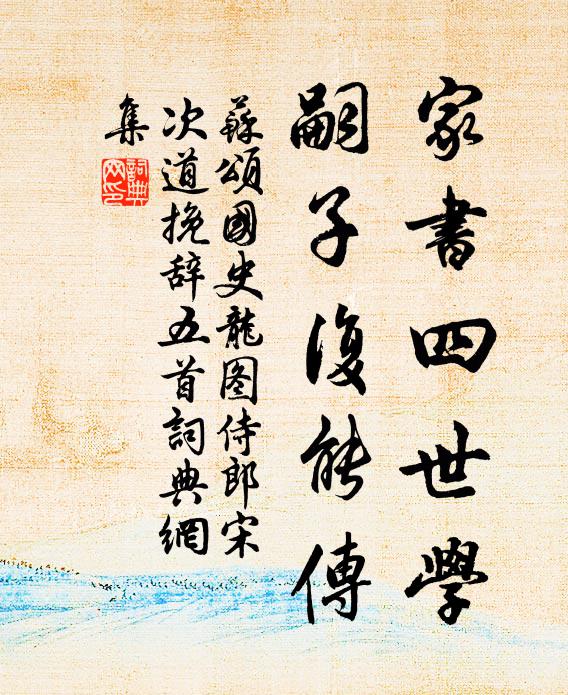 家書四世學
嗣子復能傳
蘇頌國史龍图侍郎宋
次道挽辞五首詞典網
集
詞典
网印